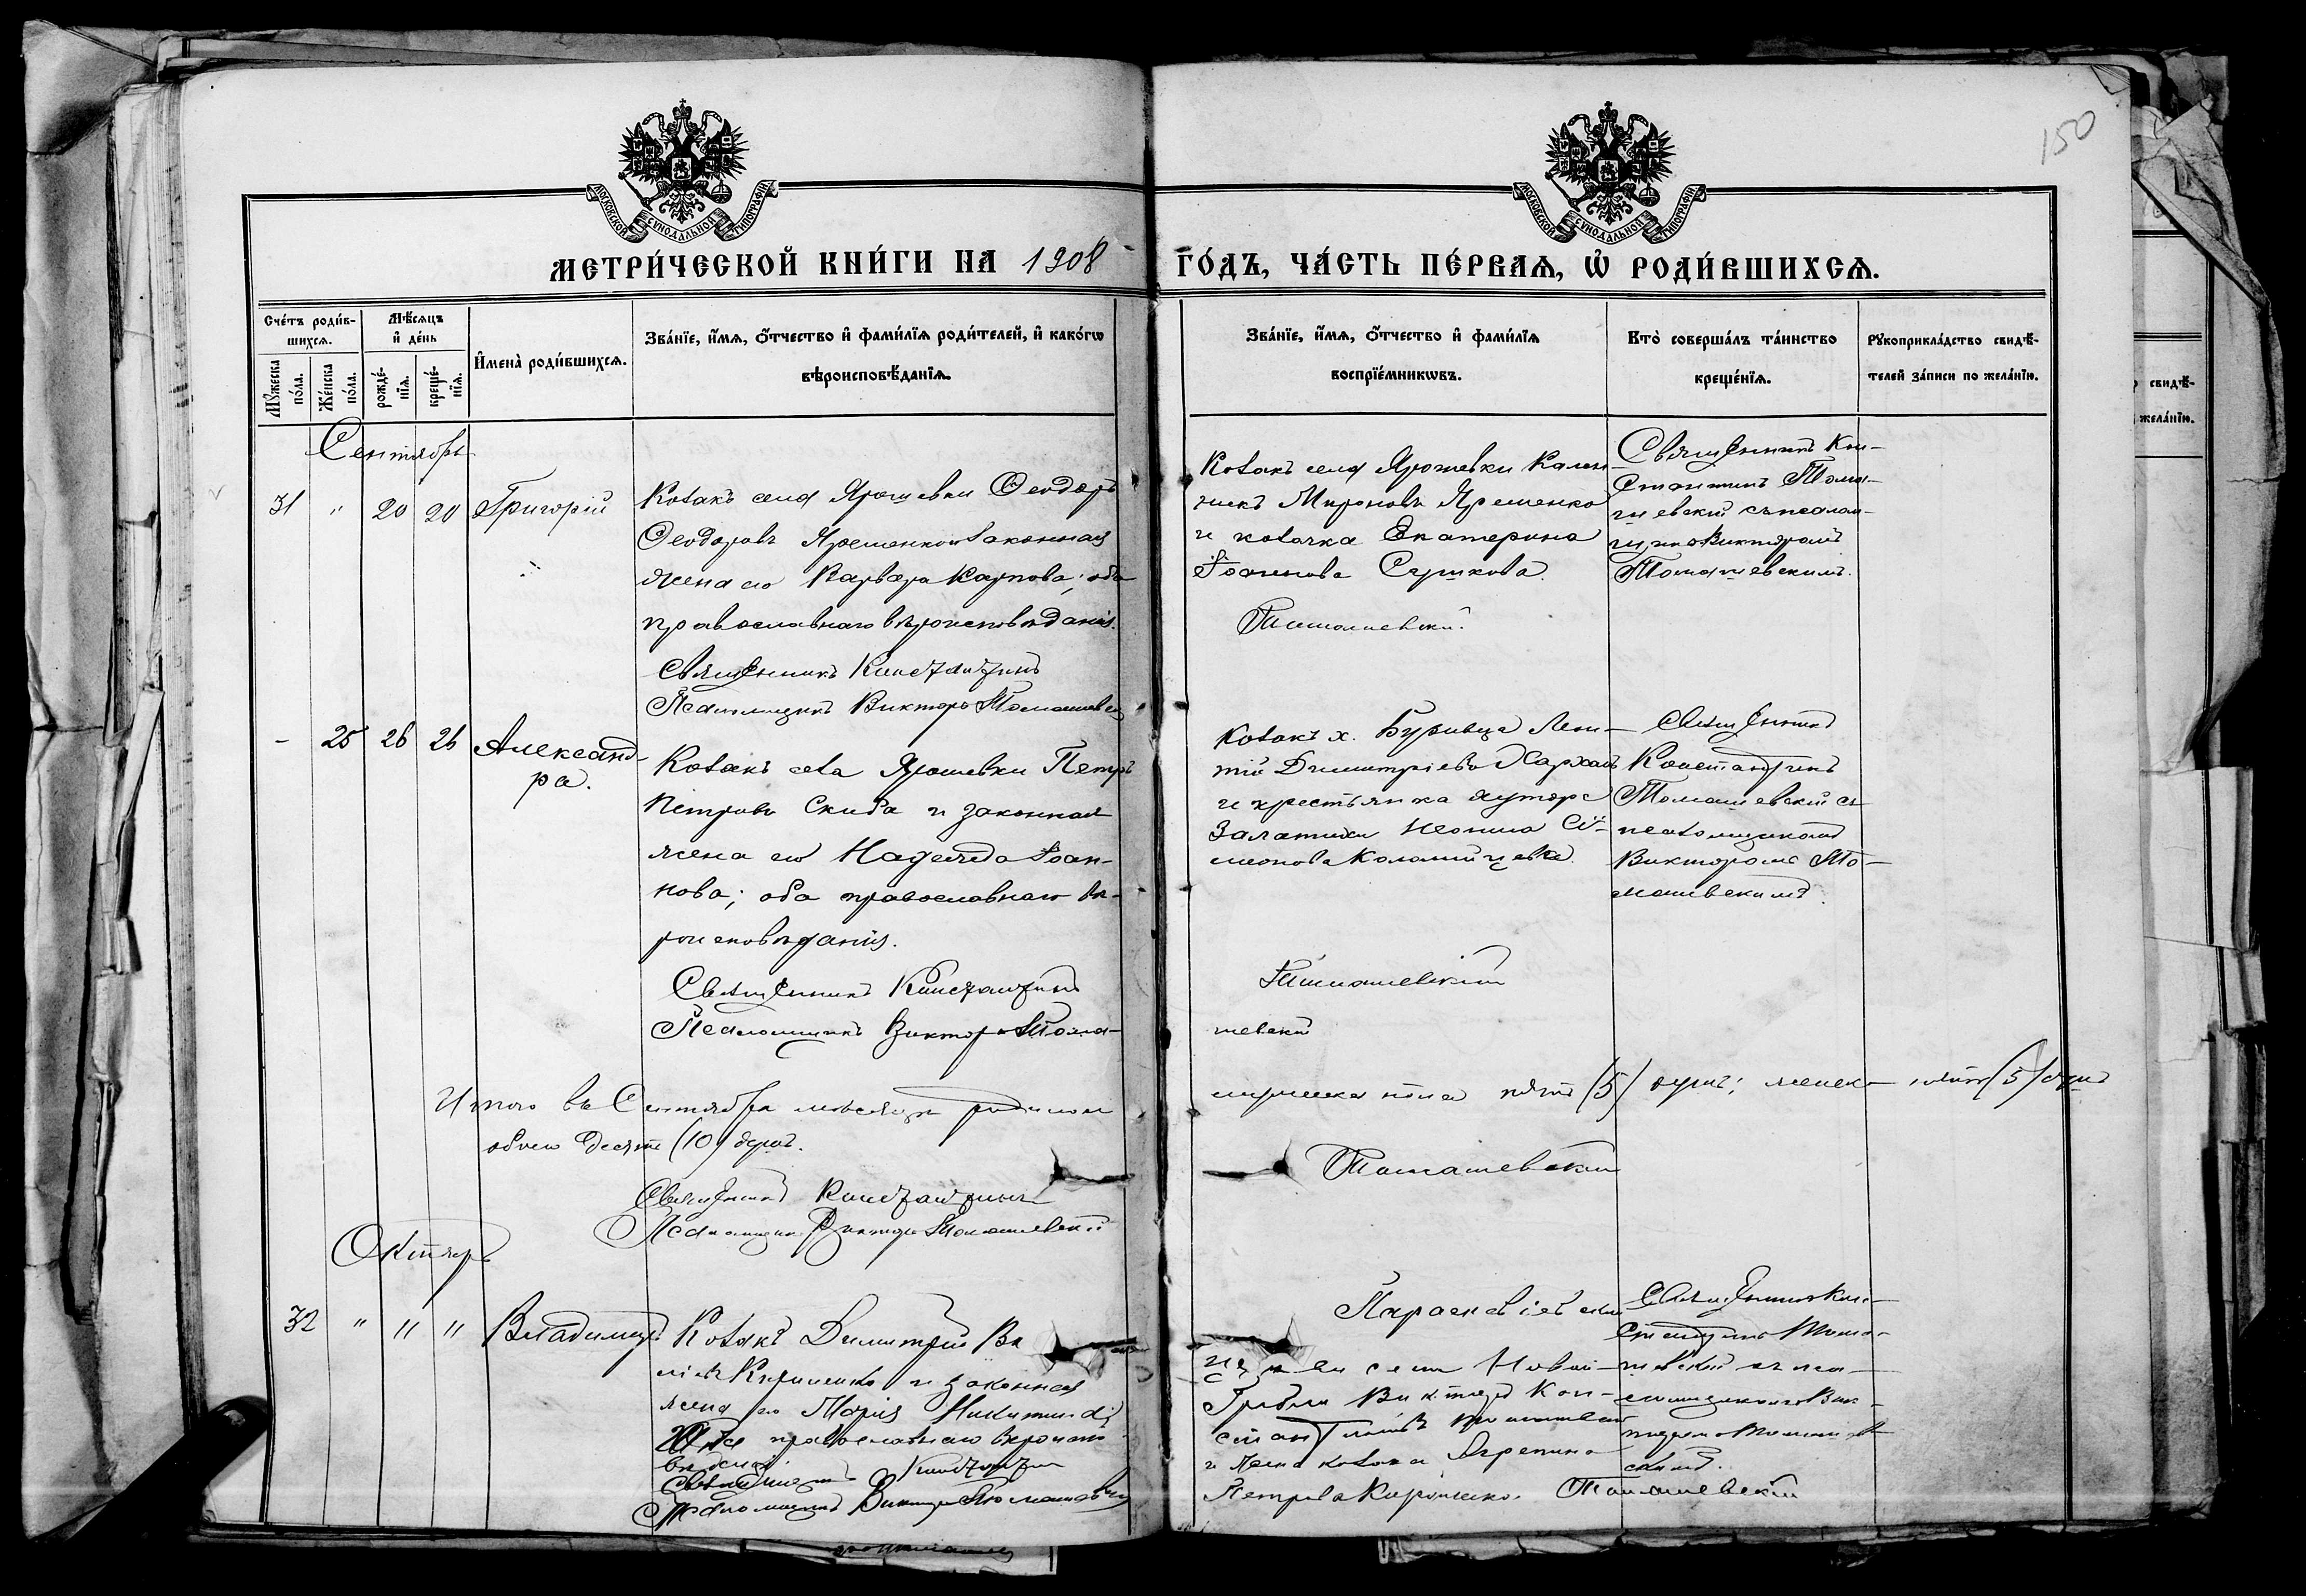 150
МОСКОВСКОЙ СУНОДАЛЬНОЙ ТИПОГРАФІИ
МОСКОВСКОЙ СУНОДАЛЬНОЙ ТИПОГРАФІИ
МЕТРИ́ЧЕСКОЙ КНИ́ГИ НА 1908
ГО́ДЪ, ЧА́СТЬ ПЕ́РВАѦ, Ѡ҆ РОДИ́ВШИХСѦ.
Сче́тъ роди́в-
шихсѧ.
Мꙋ́жеска по́ла.
Же́нска по́ла.
Мѣ́сѧцъ
и҆ де́нь
рожде́-
нїѧ.
креще́-
нїѧ.
И҆мена̀ роди́вшихсѧ.
Зва́нїе, и҆́мѧ, ѻ҆́тчество и҆ фами́лїѧ роди́телей, и҆ како́гѡ
вѣроисповѣ́данїѧ.
Зва́нїе, и҆́мѧ, ѻ҆́тчество и҆ фами́лїѧ
воспрїе́мникѡвъ.
Кто̀ соверша́лъ та́инство
креще́нїѧ.
Рꙋкоприкла́дство свидѣ́-
телей за́писи по жела́нїю.
свидѣ́-
жела́нїю.
Сентябрь
31 " 20 20 Григорій
Козакъ села Ярошевки Ѳеодоръ
Ѳеодоровъ Яременко и законная
жена его Варвара Карпова; оба
православнаго вѣроисповѣданія.
Священникъ Константинъ
Псаломщикъ Викторъ Томашевскій
Козакъ села Ярошевки Кален-
никъ Мироновъ Яременко
и козачка Екатерина
Іоаннова Сушкова.
Томашевскій.
Священникъ Кон-
стантинъ Тома-
шевскій съ псалом-
щикомъ Викторомъ
Томашевскимъ.
- 25 26 26 Александ-
ра.
Козакъ села Ярошевки Петръ
Петровъ Скиба и законная
жена его Надежда Іоан-
нова; оба православнаго вѣ-
роисповѣданія.
Священникъ Константинъ
Псаломщикъ Викторъ Тома-
Козакъ х.
Димитріевъ
и крестьянка хутора
Си-
меонова
Томашевскій
шевскій
Священникъ
Константинъ
Томашевскій съ
псаломщикомъ
Викторомъ То-
машевскимъ.
Итого въ Сентябрѣ мѣсяцѣ родилось
обоего десять (10) душъ.
мужеска пола пять (5) душъ; женск- пять (5) душъ
Священникъ Константинъ
Томашевскій
Псаломщикъ Викторъ Томашевскій
Октябрь
32 " " " Владимиръ
Козакъ Димитрій Ва
и законная
жена его Марія
православнаго вѣроиспо-
Священникъ Константинъ
Псаломщикъ Викторъ Томашевскій
села Новой-
Гребли Викторъ Кон-
стантиновъ
и жена козака Агрепина
Петрова Томашевскій
Священникъ Кон-
стантинъ Тома-
шевскій съ пса-
ломщикомъ Вик-
торомъ Томашев-
скимъ.